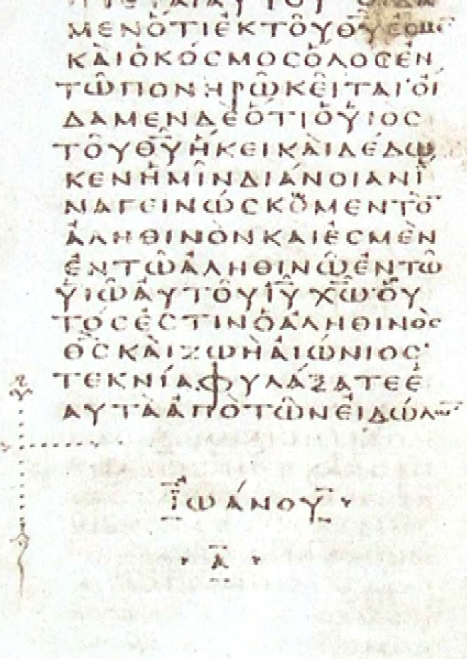 ΜΕΝΟΤΙΕΚΤΟΥΘ̅Υ̅ΕϹΜΕ̅
ΚΑΙΟΚΟϹΜΟϹΟΛΟϹΕΝ
ΤΩΠΟΝΗΡΩΚΕΙΤΑΙΟΙ
ΔΑΜΕΝΔΕΟΤΙΟΥΙΟϹ
ΤΟΥΘ̅Υ̅ΗΚΕΙΚΑΙΔΕΔΩ
ΚΕΝΗΜΙΝΔΙΑΝΟΙΑΝΙ
ΝΑΓΕΙΝΩϹΚΟΜΕΝΤΟ̅
ΑΛΗΘΙΝΟΝΚΑΙΕϹΜΕΝ
ΕΝΤΩΑΛΗΘΙΝΩΕΝΤΩ
ΥΙΩΑΥΤΟΥΙ̅Υ̅Χ̅Ω̅ΟΥ
ΤΟϹΕϹΤΙΝΟΑΛΗΘΙΝΟϹ
Θ̅Ϲ̅ΚΑΙΖΩΗΑΙΩΝΙΟϹ
ΤΕΚΝΙΑΦΥΛΑΞΑΤΕΕ
ΑΥΤΑΑΠΟΤΩΝΕΙΔΩΛΩ̅
ΙΩΑΝΟΥ
Α̅